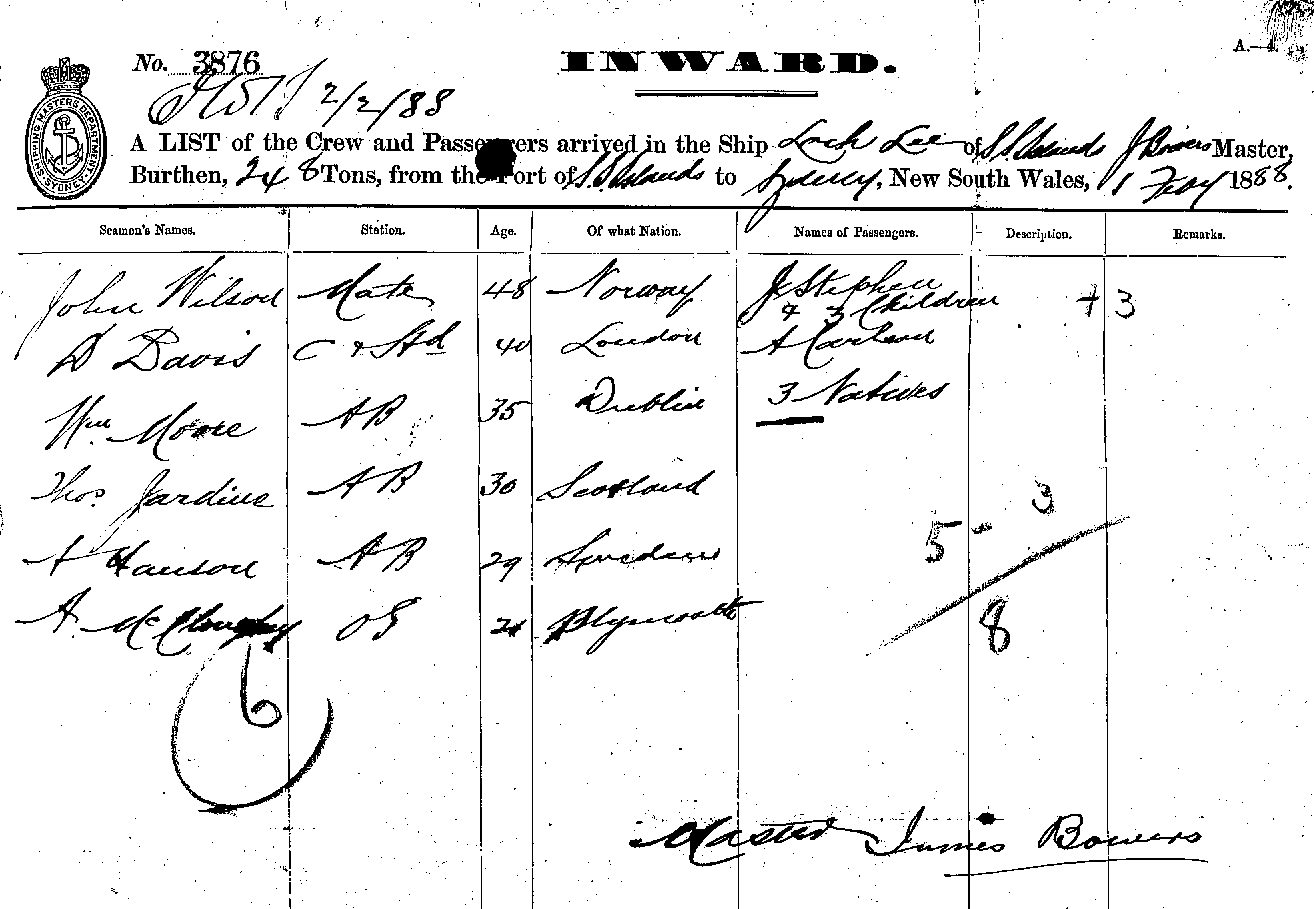 A.—4.
No. 3876
INWARD.
2/2/88
SHIPPING MASTERS DEPARTMENT SYDNEY
A LIST of the Crew and Passengers arrived in the Ship Loch Lee of S S Islands J Bowers Master,
Burthen, 248 Tons, from the Port of S S Islands to Sydney, New South Wales, 1 Feby 1888.
Seamen's Names. Station. Age. Of what Nation. Names of Passengers. Description. Remarks.
John Wilson Mate 48 Norway J Stephen
& 3 Children + 3
D Davis C & Std 40 London A Carlson
Wm Moore AB 35 Dublin 3 Natives
Thos Jardine AB 30 Scotland
5 - 3
A Hanson AB 29 Sweden
8
A. McCloughy OS 21 Plymouth
6
Master James Bowers